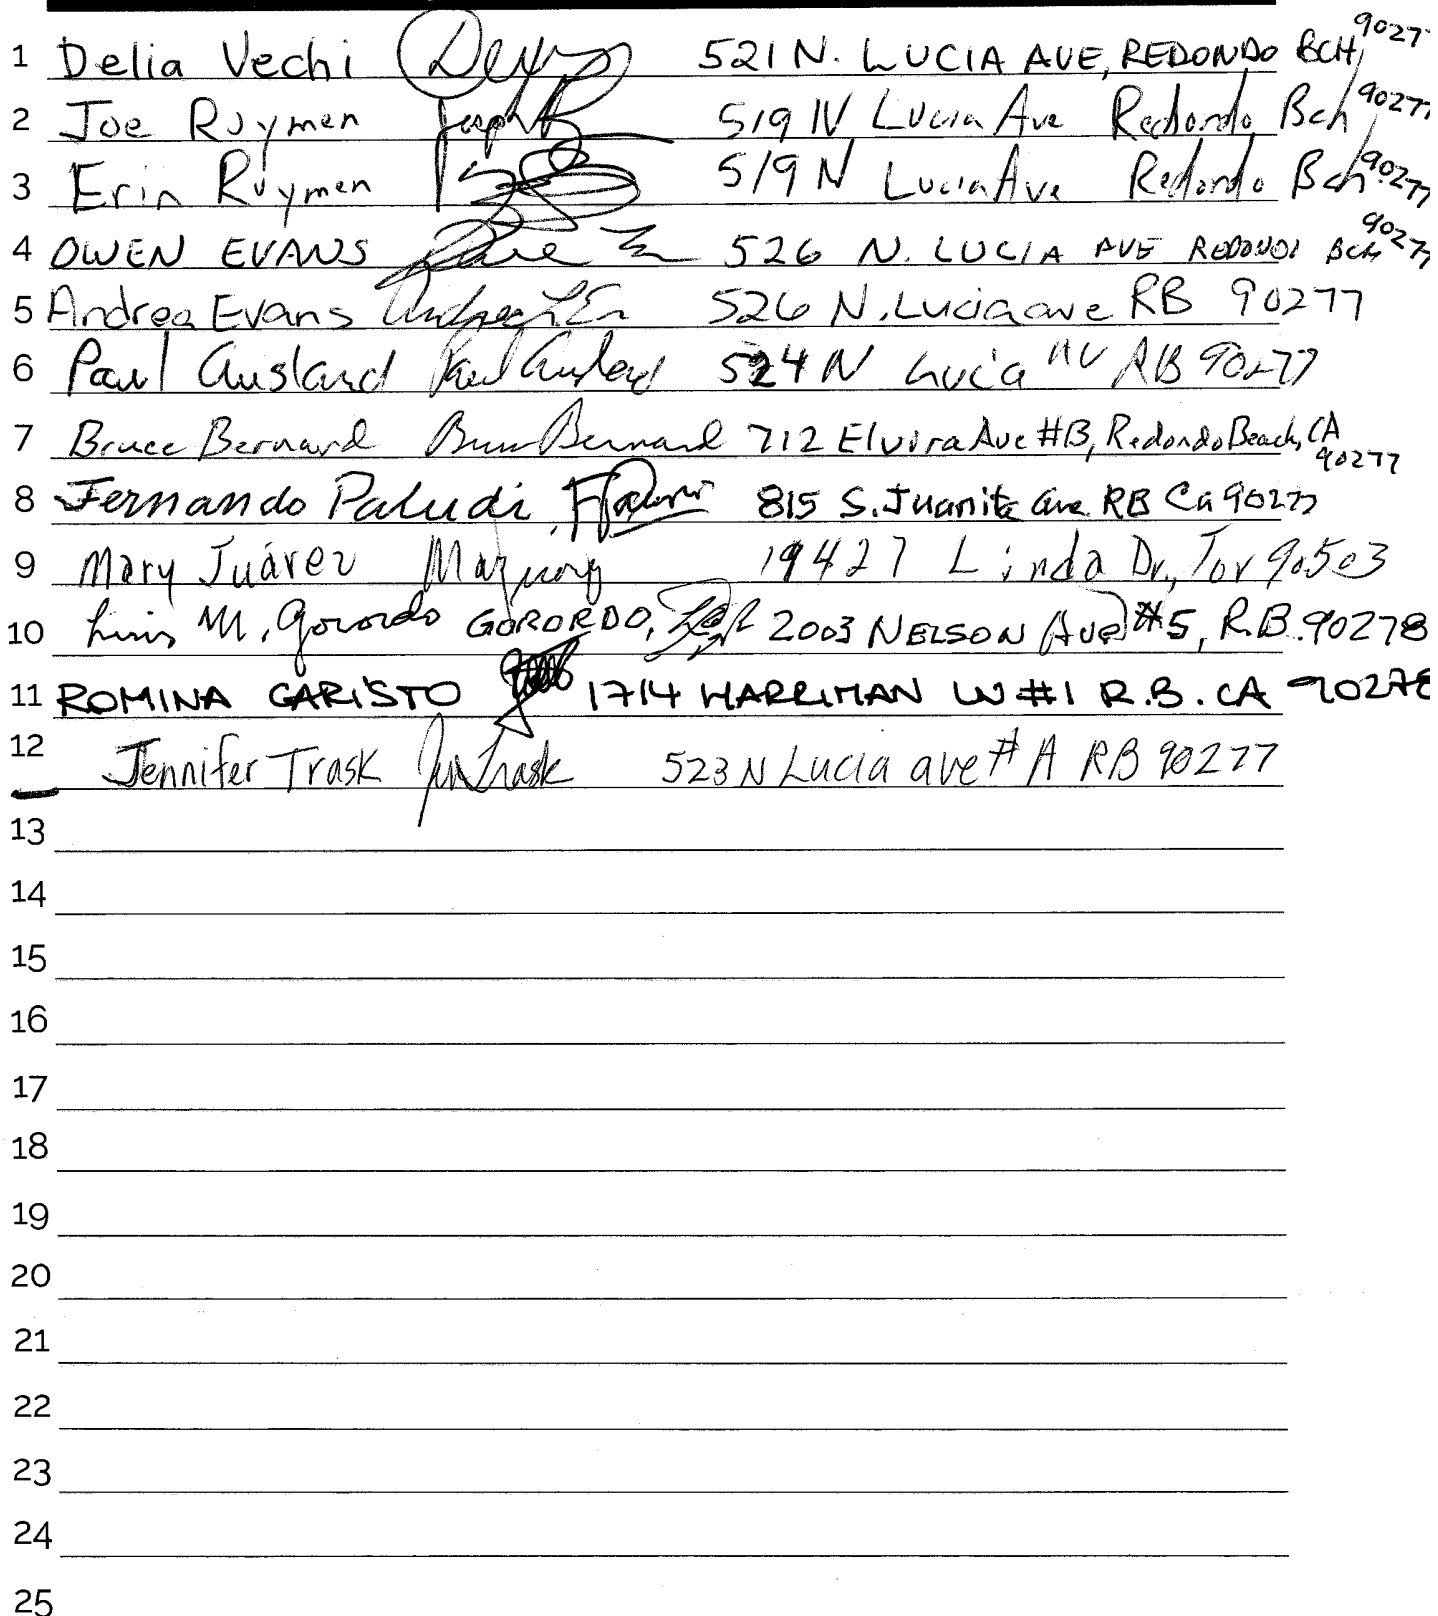 1 Delia Vechi 521 N. LUCIA AVE, REDONDO BCH, 90277
2 Joe Ruymen Joseph R 519 N Lucia Ave Redondo Bch 90277
3 Erin Ruymen 519 N Lucia Ave Redondo Bch 90277
4 OWEN EVANS 526 N. LUCIA AVE REDONDO BCH 90277
5 Andrea Evans Andrea L Ev 526 N. Lucia ave RB 90277
6 Paul Ausland Paul Ausland 524 N Lucia AV RB 90277
7 Bruce Bernard Bruce Bernard 712 Elvira Ave #B, Redondo Beach, CA 90277
8 Fernando Paludi 815 S. Juanita Ave RB Ca 90277
9 Mary Juárez 19427 Linda Dr., Tor 90503
10 Luis M. Gorordo GORORDO, 2003 NELSON Ave #5, R.B. 90278
11 ROMINA CARISTO 1714 HARRIMAN LN #1 R.B. CA 90278
12 Jennifer Trask Jen Trask 523 N Lucia ave # A RB 90277
13
14
15
16
17
18
19
20
21
22
23
24
25